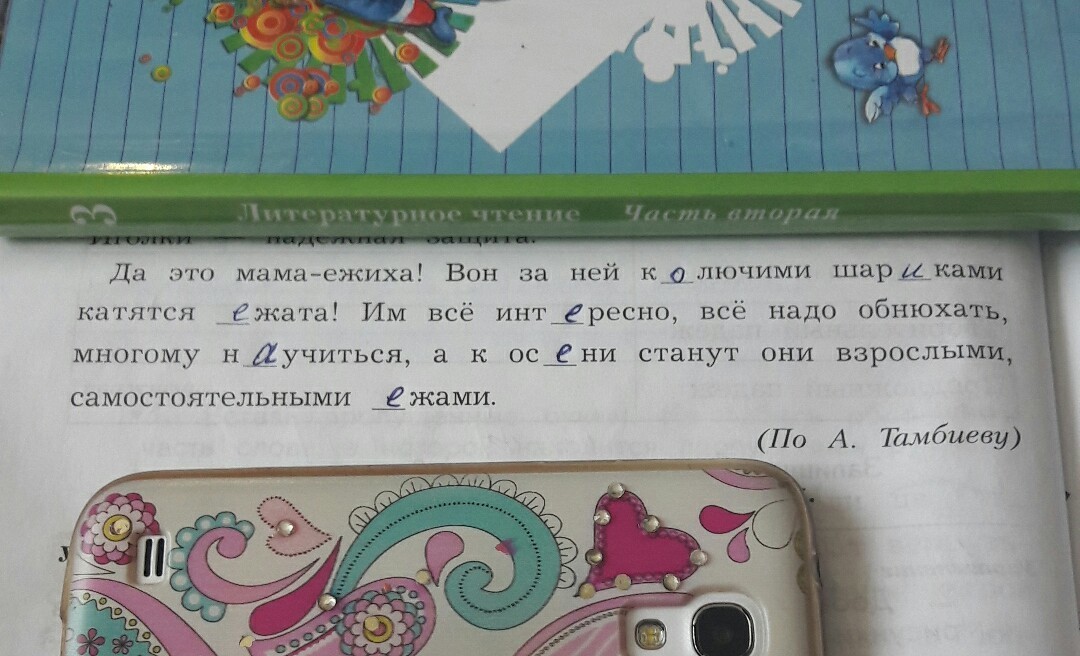 3 Литературное чтение Часть вторая
Иголки — надёжная защита.
Да это мама-ежиха! Вон за ней колючими шариками
катятся ежата! Им всё интересно, всё надо обнюхать,
многому научиться, а к осени станут они взрослыми,
самостоятельными ежами.
(По А. Тамбиеву)